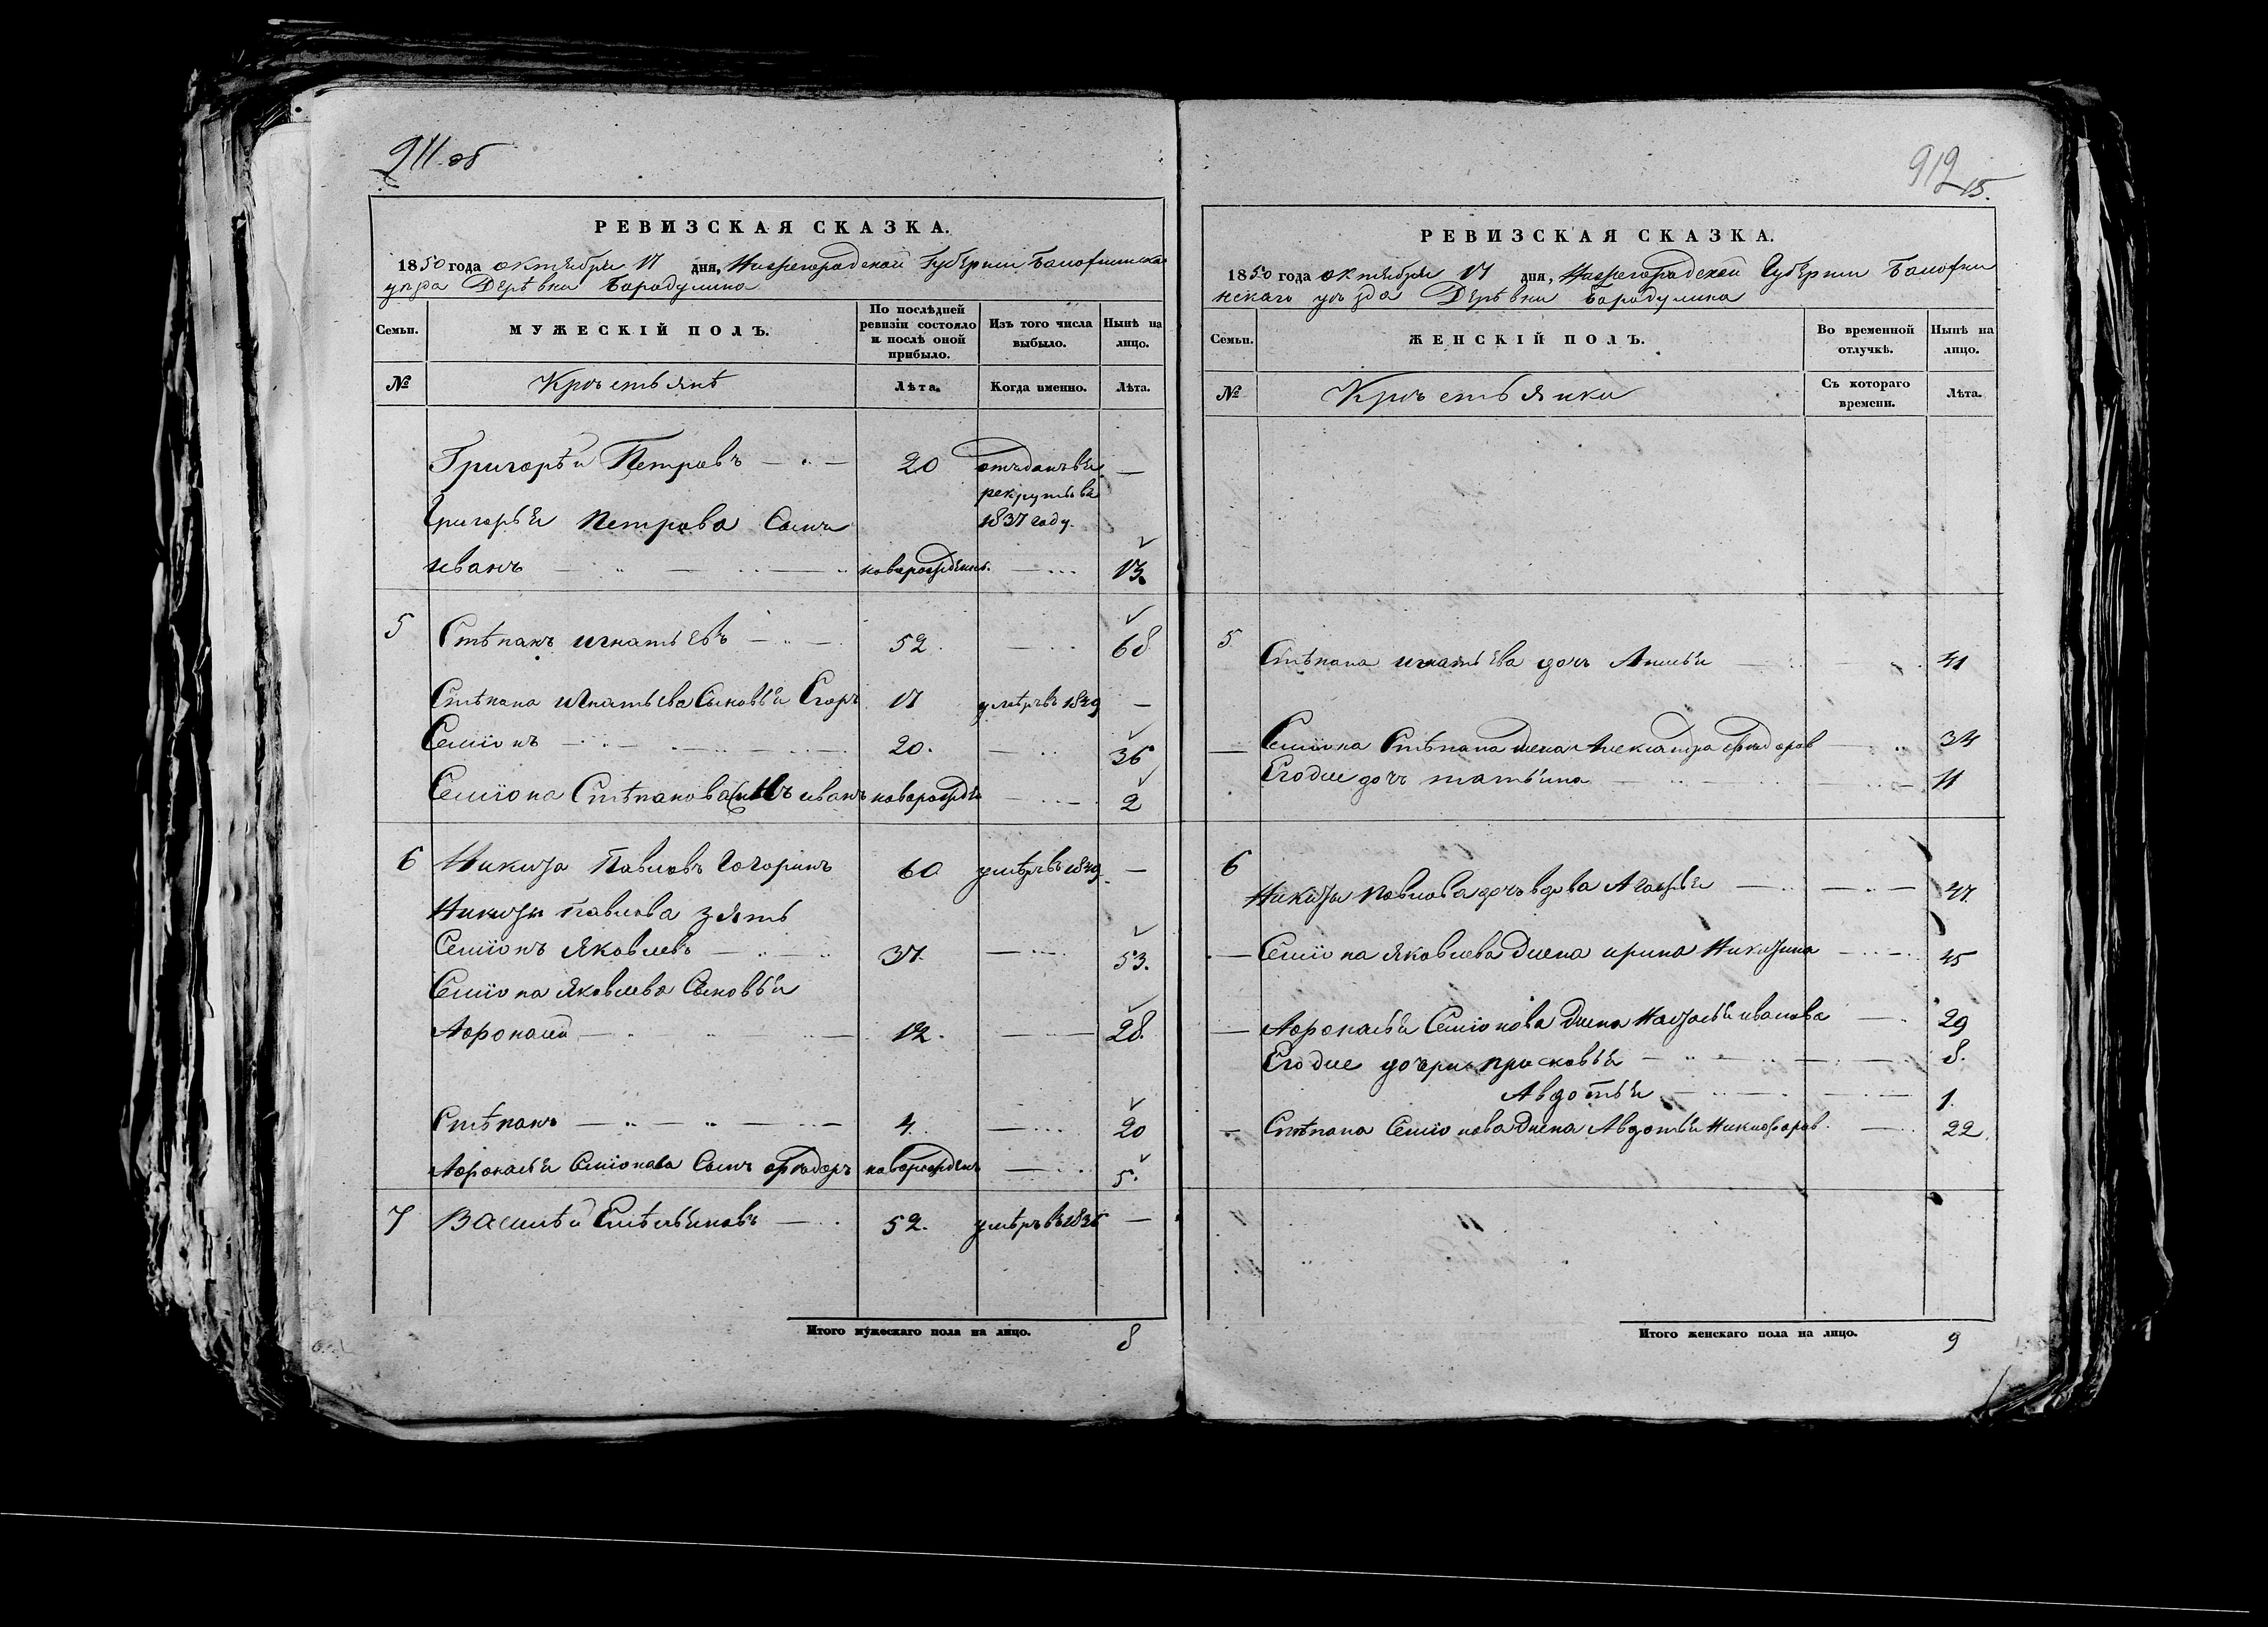 911 об
РЕВИЗСКАЯ СКАЗКА.
1850 года октября 17 дня, Нижегородской Губернии Балахнинска
уезда Деревни Бородулина
Семьи.
МУЖЕСКІЙ ПОЛЪ.
По послѣдней ревизіи состояло и послѣ оной прибыло.
Изъ того числа выбыло.
Нынѣ на лицо.
№
Крестьянѣ
Лѣта.
Когда именно.
Лѣта.
Григорѣй Петровъ 20 отъданъ въ —
рекруты въ
Григорья Петрова Сынъ 1837 году.
иванъ новорожденъ. 13.
5 Стѣпанъ игнатьевъ 52. 68
Стѣпана игнатьева Сыновья Егоръ 17 умѣръ въ 1849 —
Семіонъ 20. 36
Семіона Стѣпанова Сынъ иванъ новорожде 2
6 Никита Павловъ 60 умѣръ въ 1849 —
Никиты павлова зять
Семіонъ Яковлевъ 37. 53.
Семіона Яковлева Сыновья
Афонасѣй 12. 28.
Стѣпанъ 4. 20
Афонасья Семіонова Сынъ Фѣодоръ новорожденъ 5.
7 Василѣй Емѣльяновъ 52. умѣръ въ 1836 —
Итого мужескаго пола на лицо. 8
912
15.
РЕВИЗСКАЯ СКАЗКА.
1850 года октября 17 дня, Нижегородской Губернии Балахни
нскаго уезда Деревни Бородулина
Семьи.
ЖЕНСКІЙ ПОЛЪ.
Во временной отлучкѣ.
Нынѣ на лицо.
№
Крестьянки
Съ котораго времени.
Лѣта.
5
Стѣпана игнатьева дочь 41
— Семіона Стѣпана жена Александра Фѣодоров 34
Егоже дочь татьяна 11
6
Никиты Павлова дочь вдова Агафья 47.
— Семіона Яковлева жена ирина Никитина 45
— Афонасья Семіонова жена Наталья иванова 29
Егоже дочери прасковья 8.
Авдотья 1.
— Стѣпана Семіонова жена Авдотья Никифоров. 22.
Итого женскаго пола на лицо. 9